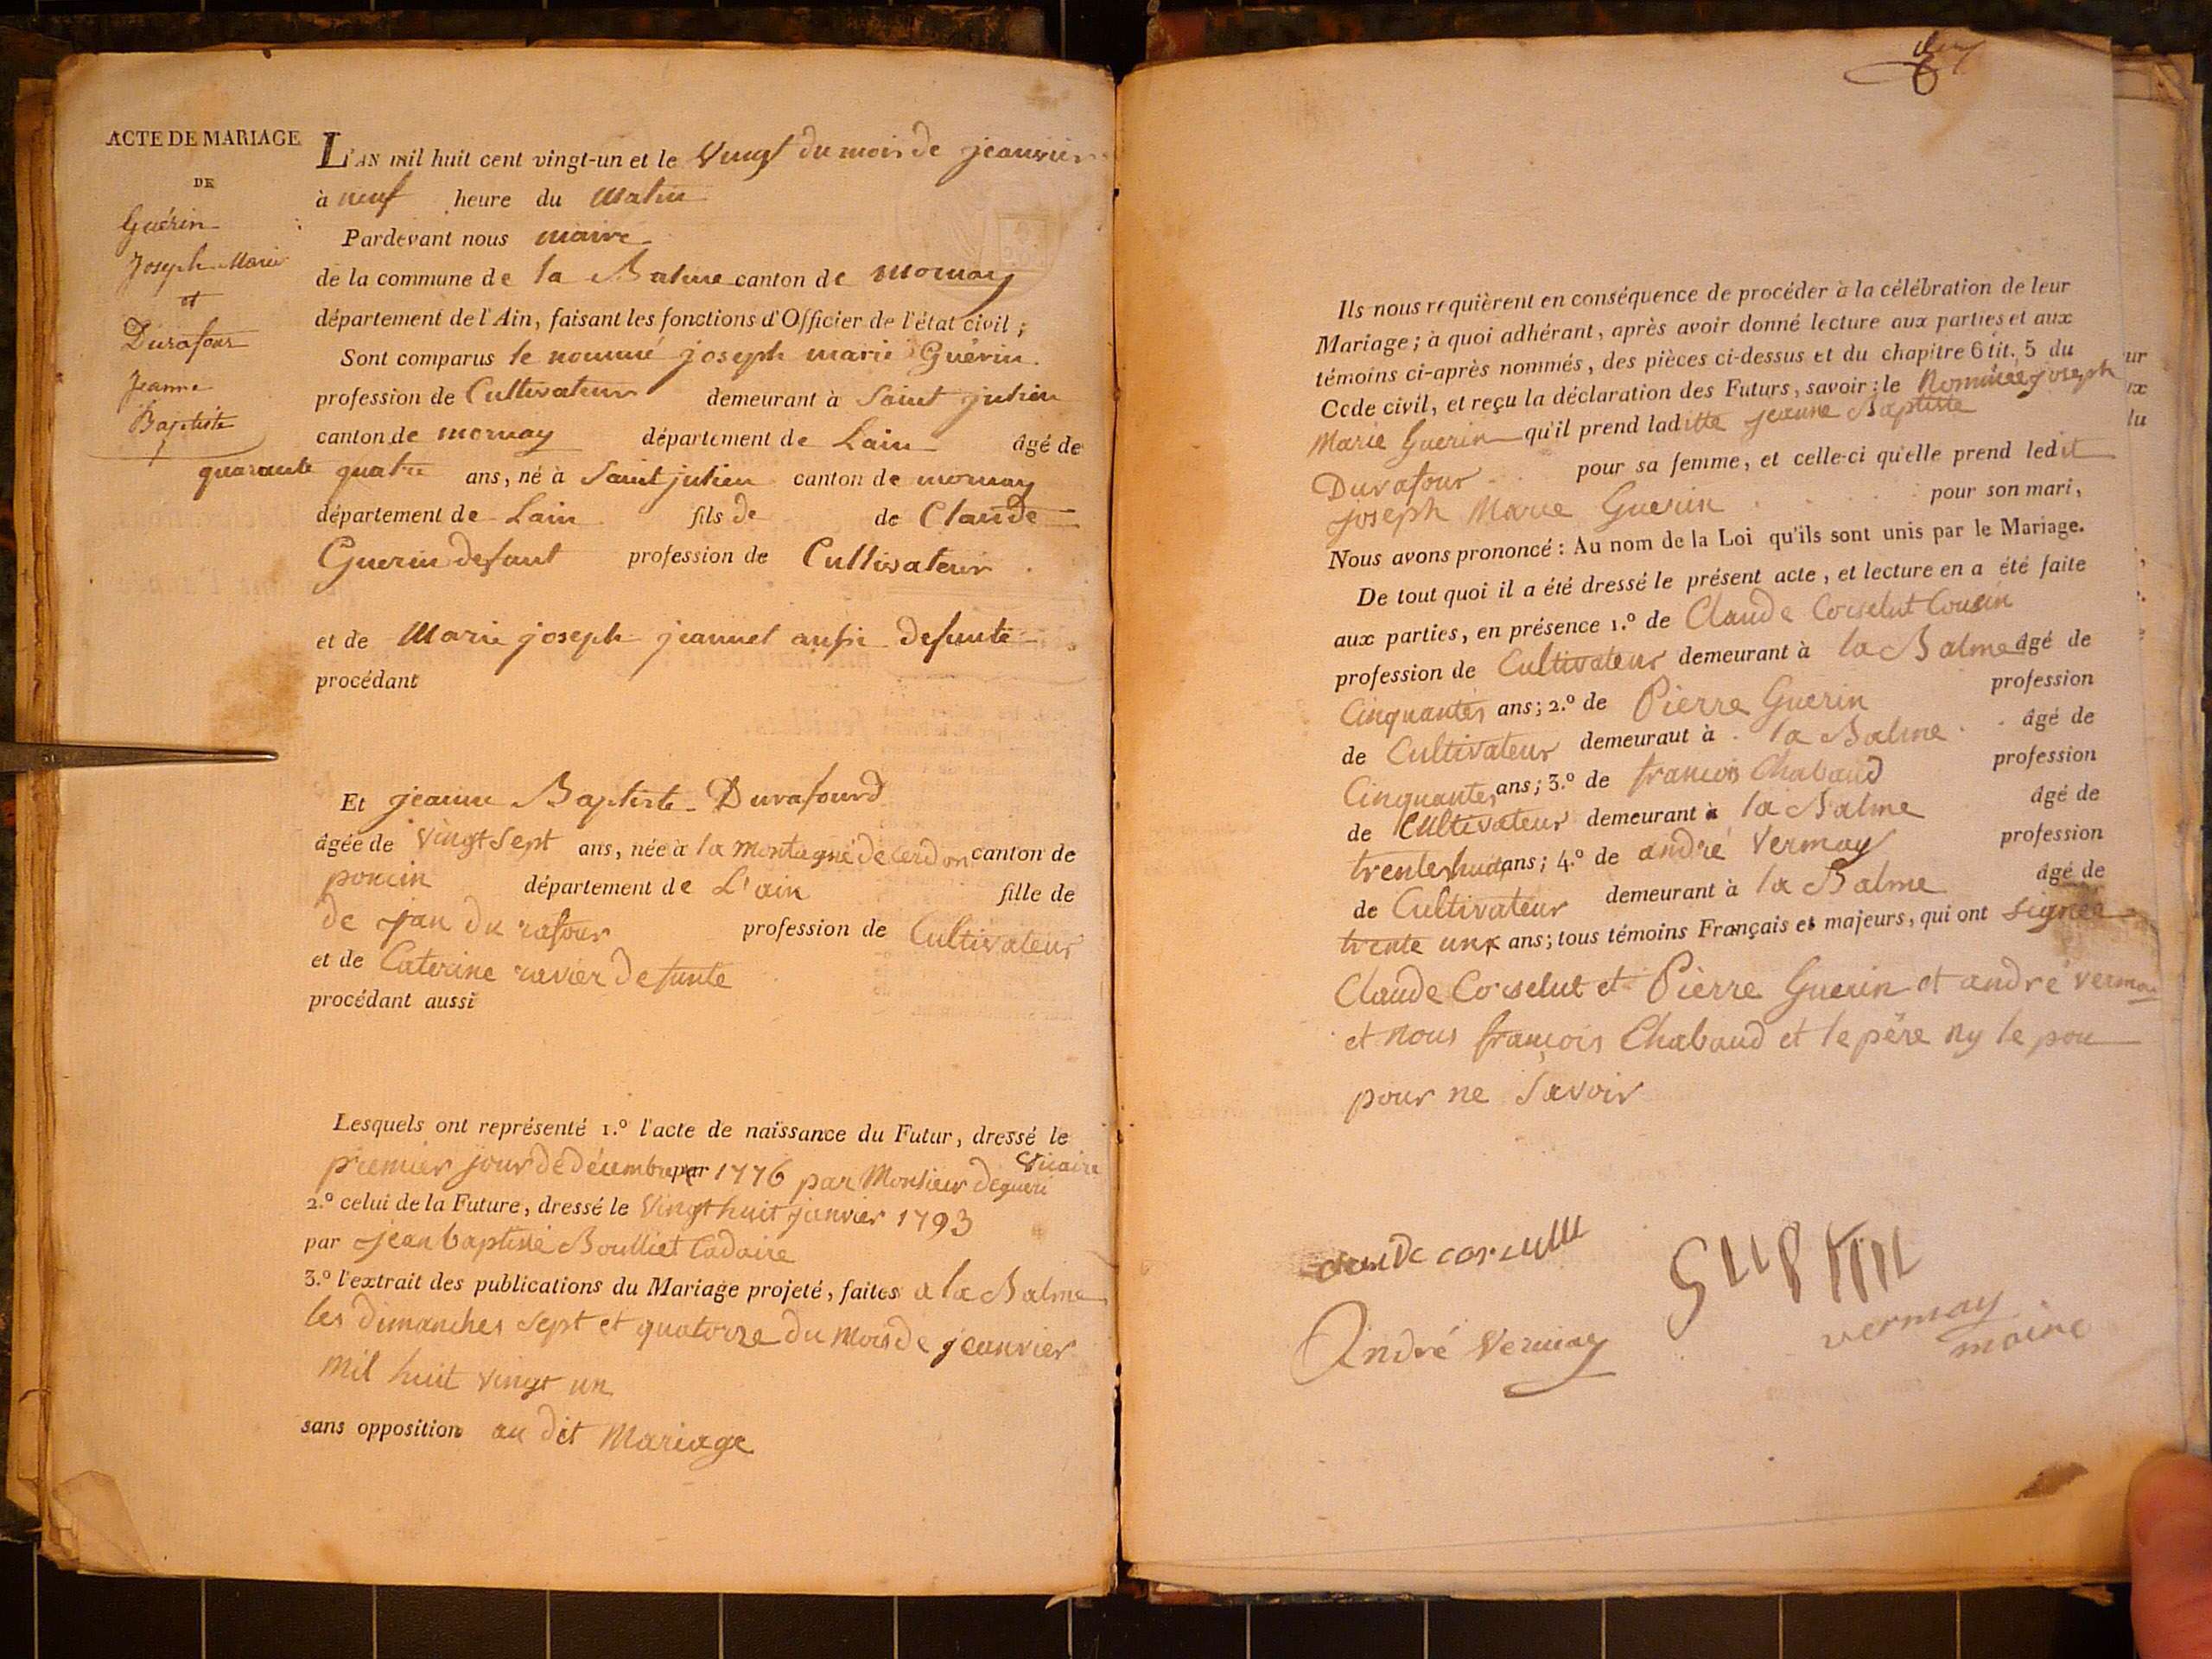 ACTE DE MARIAGE
DE
Guérin
Joseph Marie
et
Durafour
Jeanne
Baptiste
L'AN mil huit cent vingt-un et le Vingt du mois de jeanvier
à neuf heure du Matin
Pardevant nous maire
de la commune de la Balme canton de mornay
département de l'Ain, faisant les fonctions d'Officier de l'état civil ;
Sont comparus le nommé joseph marie Guérin
profession de Cultivateur demeurant à Saint julien
canton de mornay département de Lain âgé de
quarante quatre ans, né à Saint julien canton de mornay
département de Lain fils de de Claude
Guerin defunt profession de Cultivateur
et de Marie joseph jeannet aussi defunte
procédant
Et jeanne Baptiste Durafourd
âgée de vingt sept ans, née à la montagne de Cerdon canton de
poncin département de L'ain fille de
de jan du rafour profession de Cultivateur
et de Caterine ravier defunte
procédant aussi
Lesquels ont représenté 1.º l'acte de naissance du Futur, dressé le
premier jour de décembre par 1776 par Monsieur degueri vicaire
2.º celui de la Future, dressé le vingt huit janvier 1793
par jean baptiste Boulliet
3.º l'extrait des publications du Mariage projeté, faites a la Balme
les dimanches sept et quatorze du mois de jeanvier
mil huit vingt un
sans opposition au dit Mariage
Ils nous requièrent en conséquence de procéder à la célébration de leur
Mariage ; à quoi adhérant, après avoir donné lecture aux parties et aux
témoins ci-après nommés, des pièces ci-dessus et du chapitre 6 tit. 5 du
Code civil, et reçu la déclaration des Futurs, savoir : le Nommée joseph
Marie Guerin qu'il prend laditte jeanne Baptiste
Durafour pour sa femme, et celle-ci qu'elle prend ledit
joseph Marie Guerin pour son mari,
Nous avons prononcé : Au nom de la Loi qu'ils sont unis par le Mariage.
De tout quoi il a été dressé le présent acte, et lecture en a été faite
aux parties, en présence 1.º de Claude Corselut Cousin
profession de Cultivateur demeurant à la Balme âgé de
Cinquantes ans ; 2.º de Pierre Guerin profession
de Cultivateur demeuraut à la Balme âgé de
Cinquantes ans ; 3.º de francois Chabaud profession
de Cultivateur demeurant à la Balme âgé de
trentes huit ans ; 4.º de andré Vermay profession
de Cultivateur demeurant à la Balme âgé de
trente un ans ; tous témoins Français et majeurs, qui ont signée
Claude Corselut et Pierre Guerin et andré vermay
et nous francois Chabaud et le père ny le pou
pour ne Savoir
claude corselut
guerin
André Vermay
vermay
maire